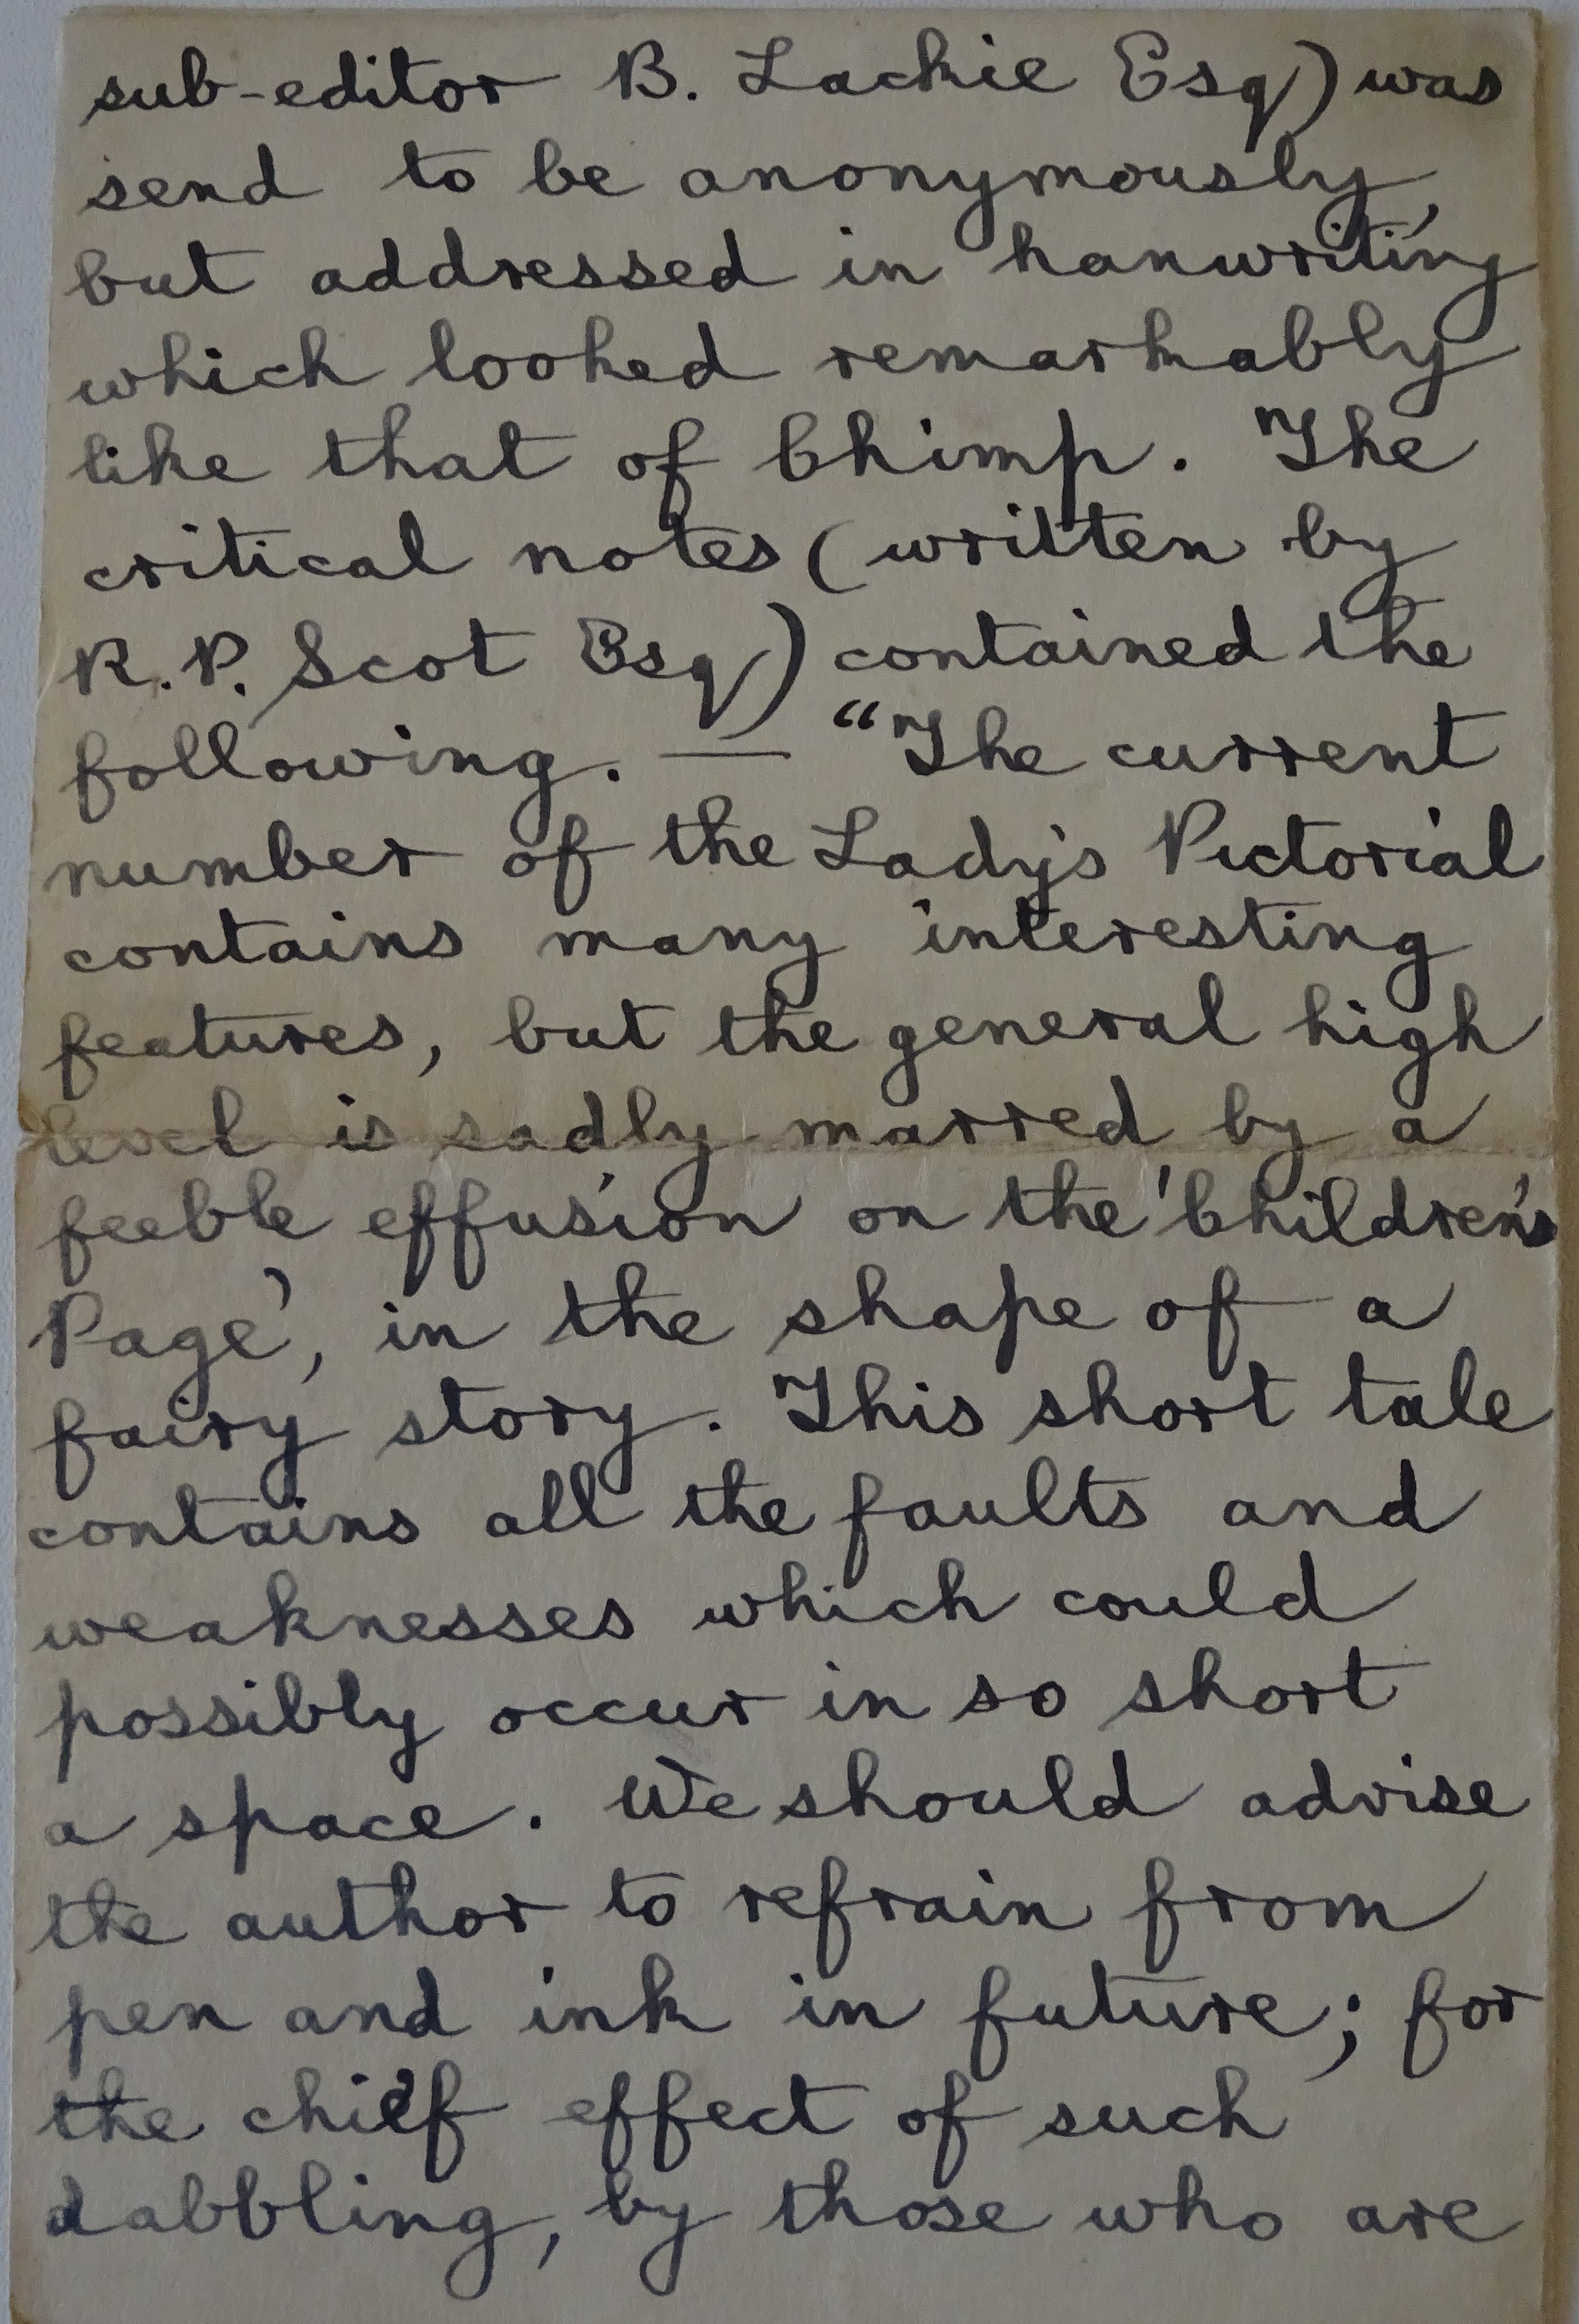 sub-editor B. Lackie Esq) was
send to be anonymously,
but addressed in hanwriting
which looked remarkably
like that of Chimp. The
critical notes (written by
R.P. Scot Esq) contained the
following. — "The current
number of the Lady's Pictorial
contains many interesting
features, but the general high
level is sadly marred by a
feeble effusion on the 'Children's
Page', in the shape of a
fairy story. This short tale
contains all the faults and
weaknesses which could
possibly occur in so short
a space. We should advise
the author to refrain from
pen and ink in future; for
the chief effect of such
dabbling, by those who are